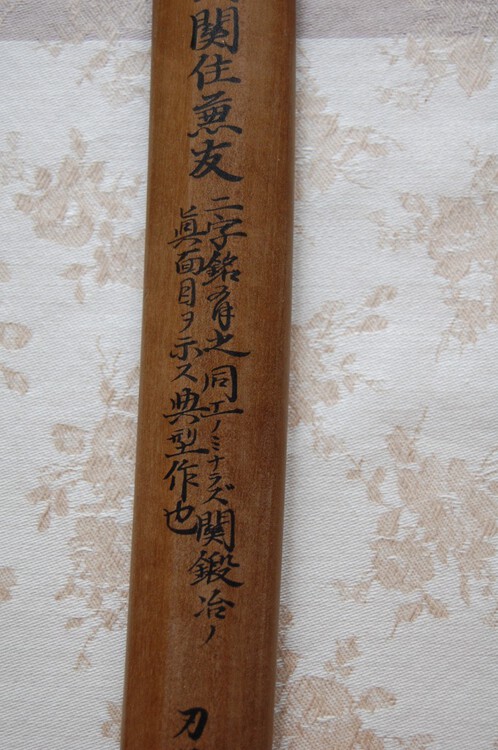 関住兼友
二字銘有之同工ノミナラズ関鍛冶ノ
眞面目ヲ示ス典型作也
刀